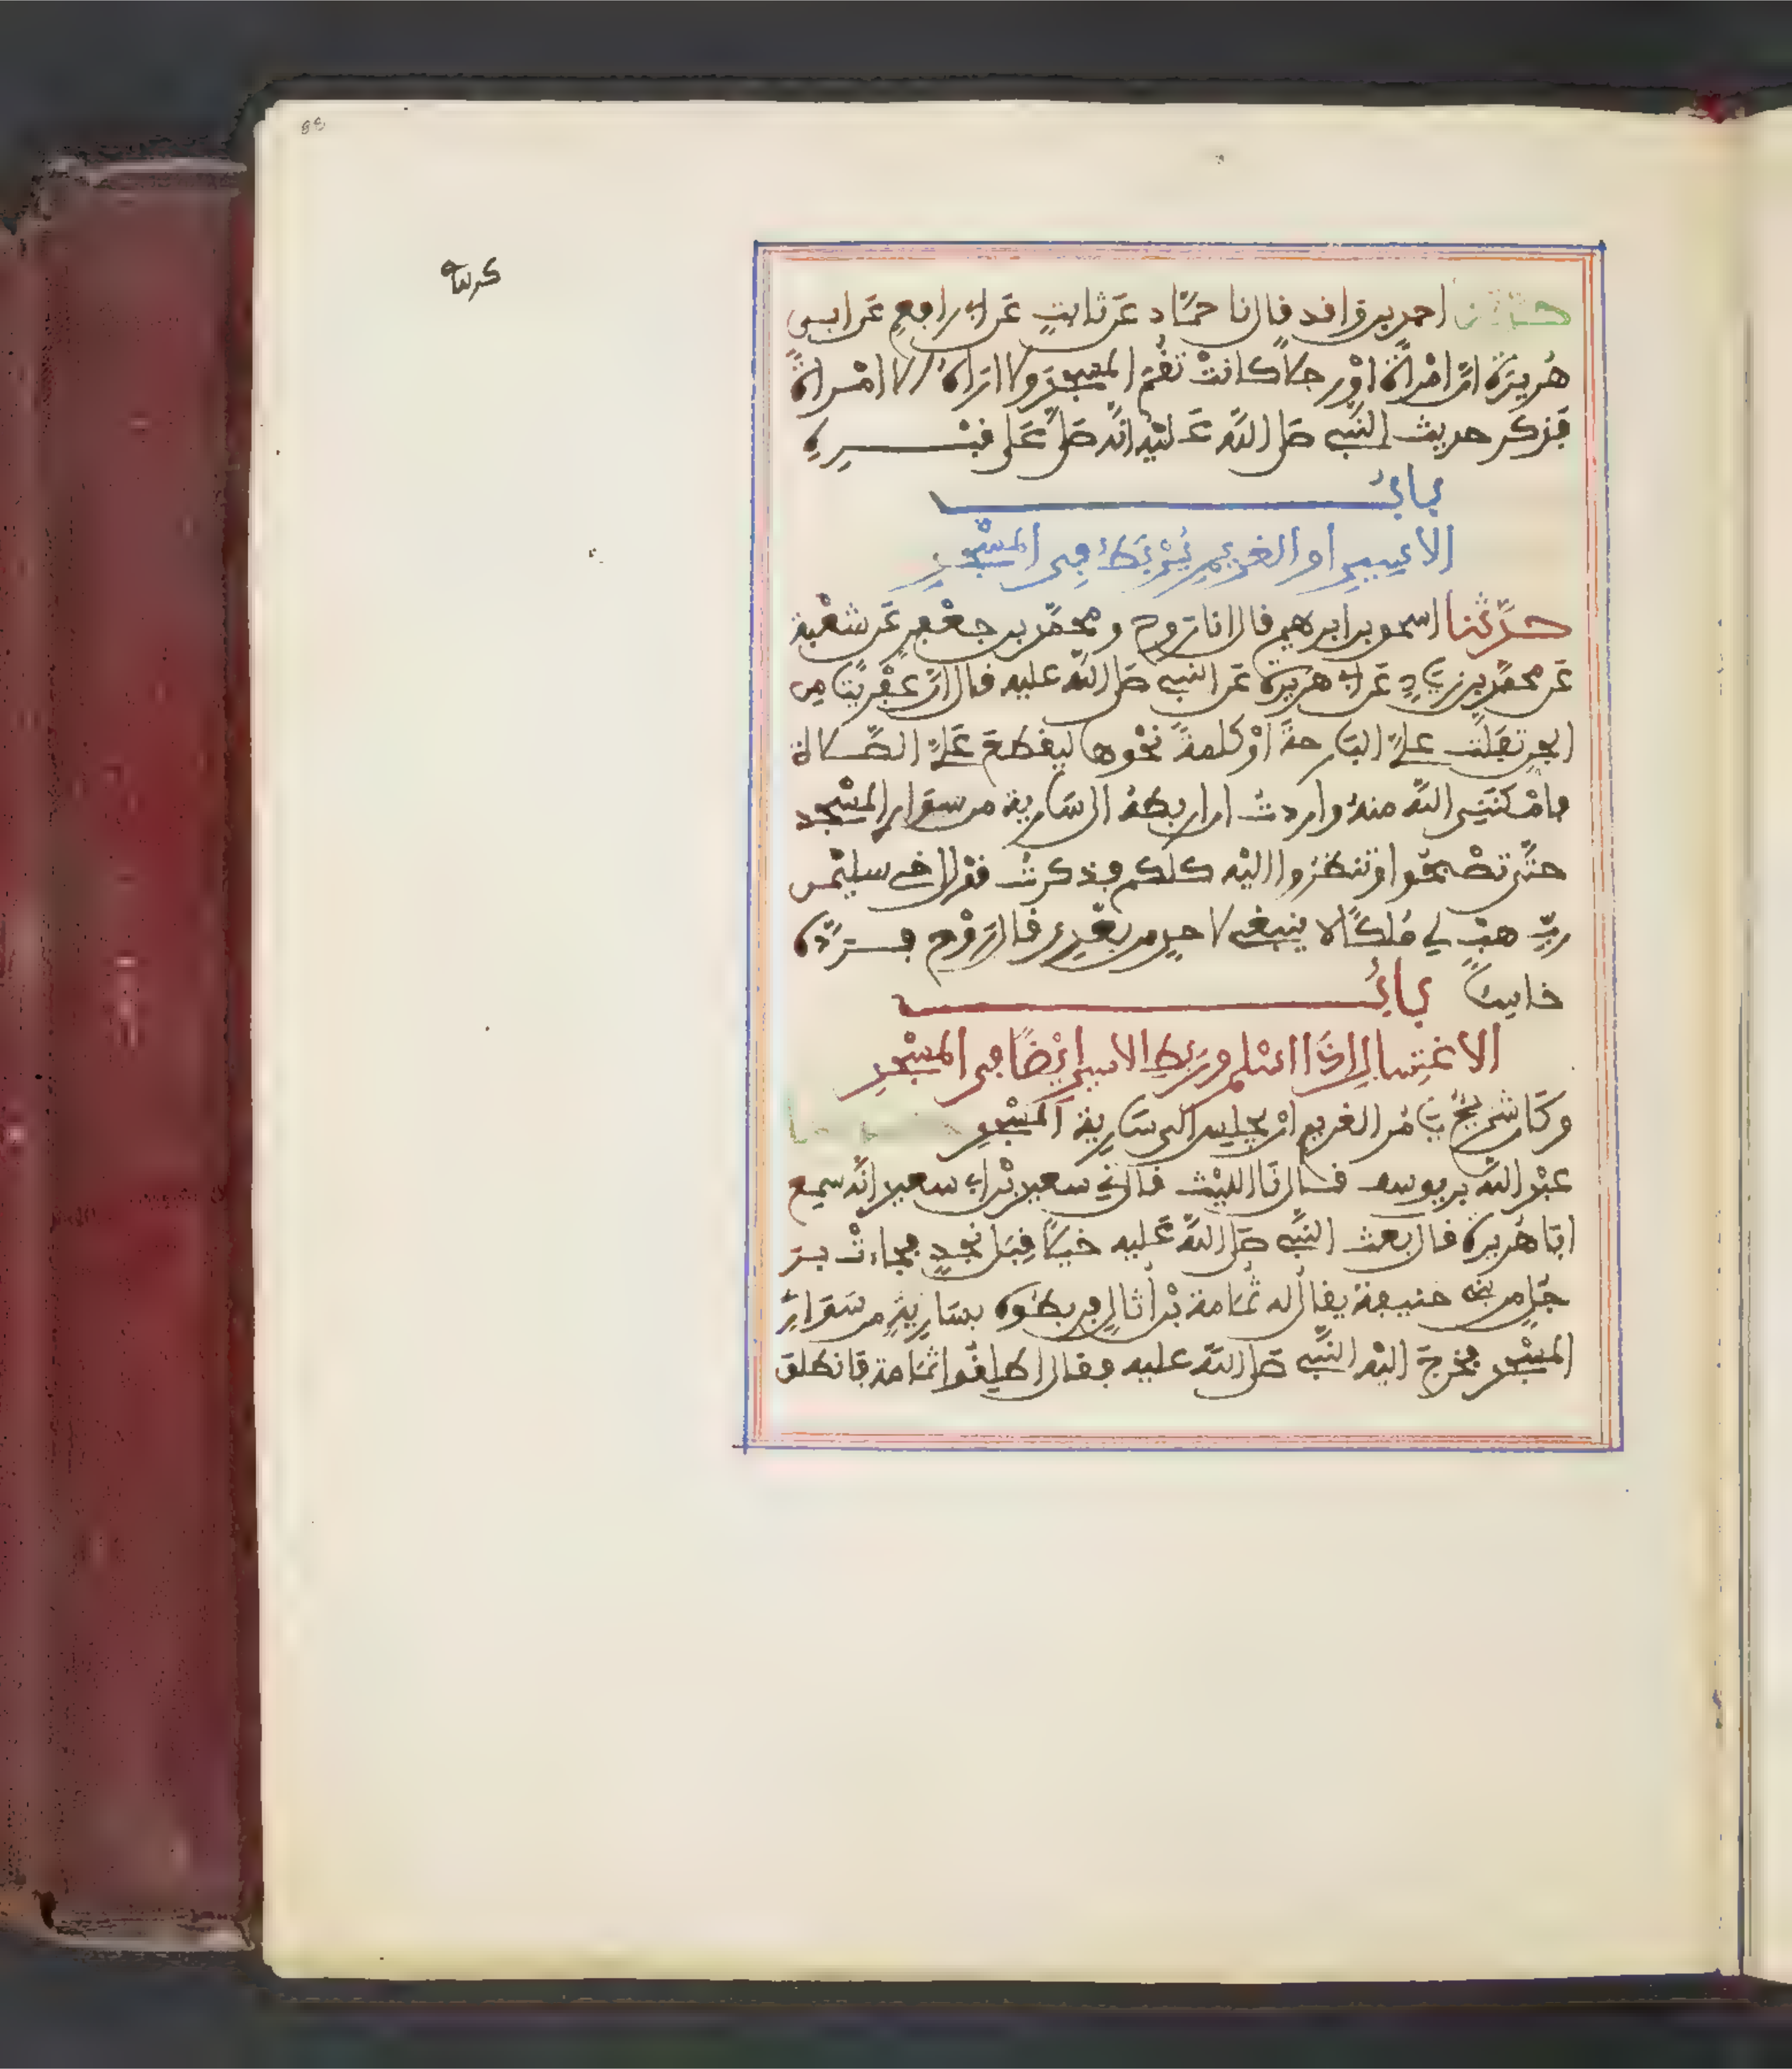 حدثنا احمد بن واقد قال نا حمّاد عن ثابتٍ عن ابي رافعٍ عن ابي
هُريرَة انّ امْراةً اوْ رجلاً كانتْ تقُمّ المسجِدَ ولا اراهُ الا امْراةً
فذكر حديث النّبي صلى اللّه عليْه انّه صلّى على قبْـــرِهِ
بابُ
الاسيرِ او الغريمِ يُرْبَطُ في المسْجدِ
حدّثنا اسحٰق بن ابرٰهيم قال انا روح ومحمّد بن جعْفرٍ عن شعْبة
عن محمّد بن زيادٍ عن ابي هريرة عن النبي صلى اللّه عليه قال انّ عِفْريتًا من
الجنِ تفلّت عليّ البارحةَ اوْ كلمةً نحْوها ليقطعَ عليّ الصّلاة
فامْكنَنِي اللّه منهُ واردتُ ان اربطهُ الى سَارية من سوارِي المسْجد
حتّى تصْبحُوا وتنظرُوا اليْه كلكم فذكرتُ قوْل اخي سليمٰن
ربّ هبْ لي مُلكًا لا ينبغي لاحدٍ من بعْدِي قال رَوْح فــردّه
خاسئًا بابُ
الاغتِسالِ اذَا اسْلم وربْطِ الاسيرِ ايْضًا في المسْجدِ
وكان شريْحٌ يامُر الغريم انْ يحْبس الى سَارِية المسْجدِ
عبْد اللّه بن يوسف قـال نا الليْث قال ني سعيد بْن ابي سعيد انّه سمِع
ابا هُريرة قال بعث النّبي صلى اللّه عليه خيلًا قِبَل نجْدٍ فجاءتْ بر
جُلٍ من بني حنيفة يقالُ له ثُمامة بْن أُثالٍ فربطُوه بسَارِيةٍ من سَوَارِي
المسْجدِ فخرجَ اليْه النّبي صلى اللّه عليه فقال اطلِقُوا ثمَامة فانطلق